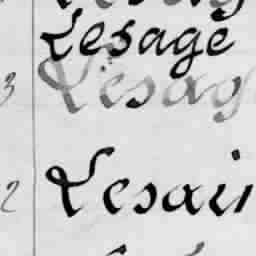 Lesage
3 Lesag
2 Lesain